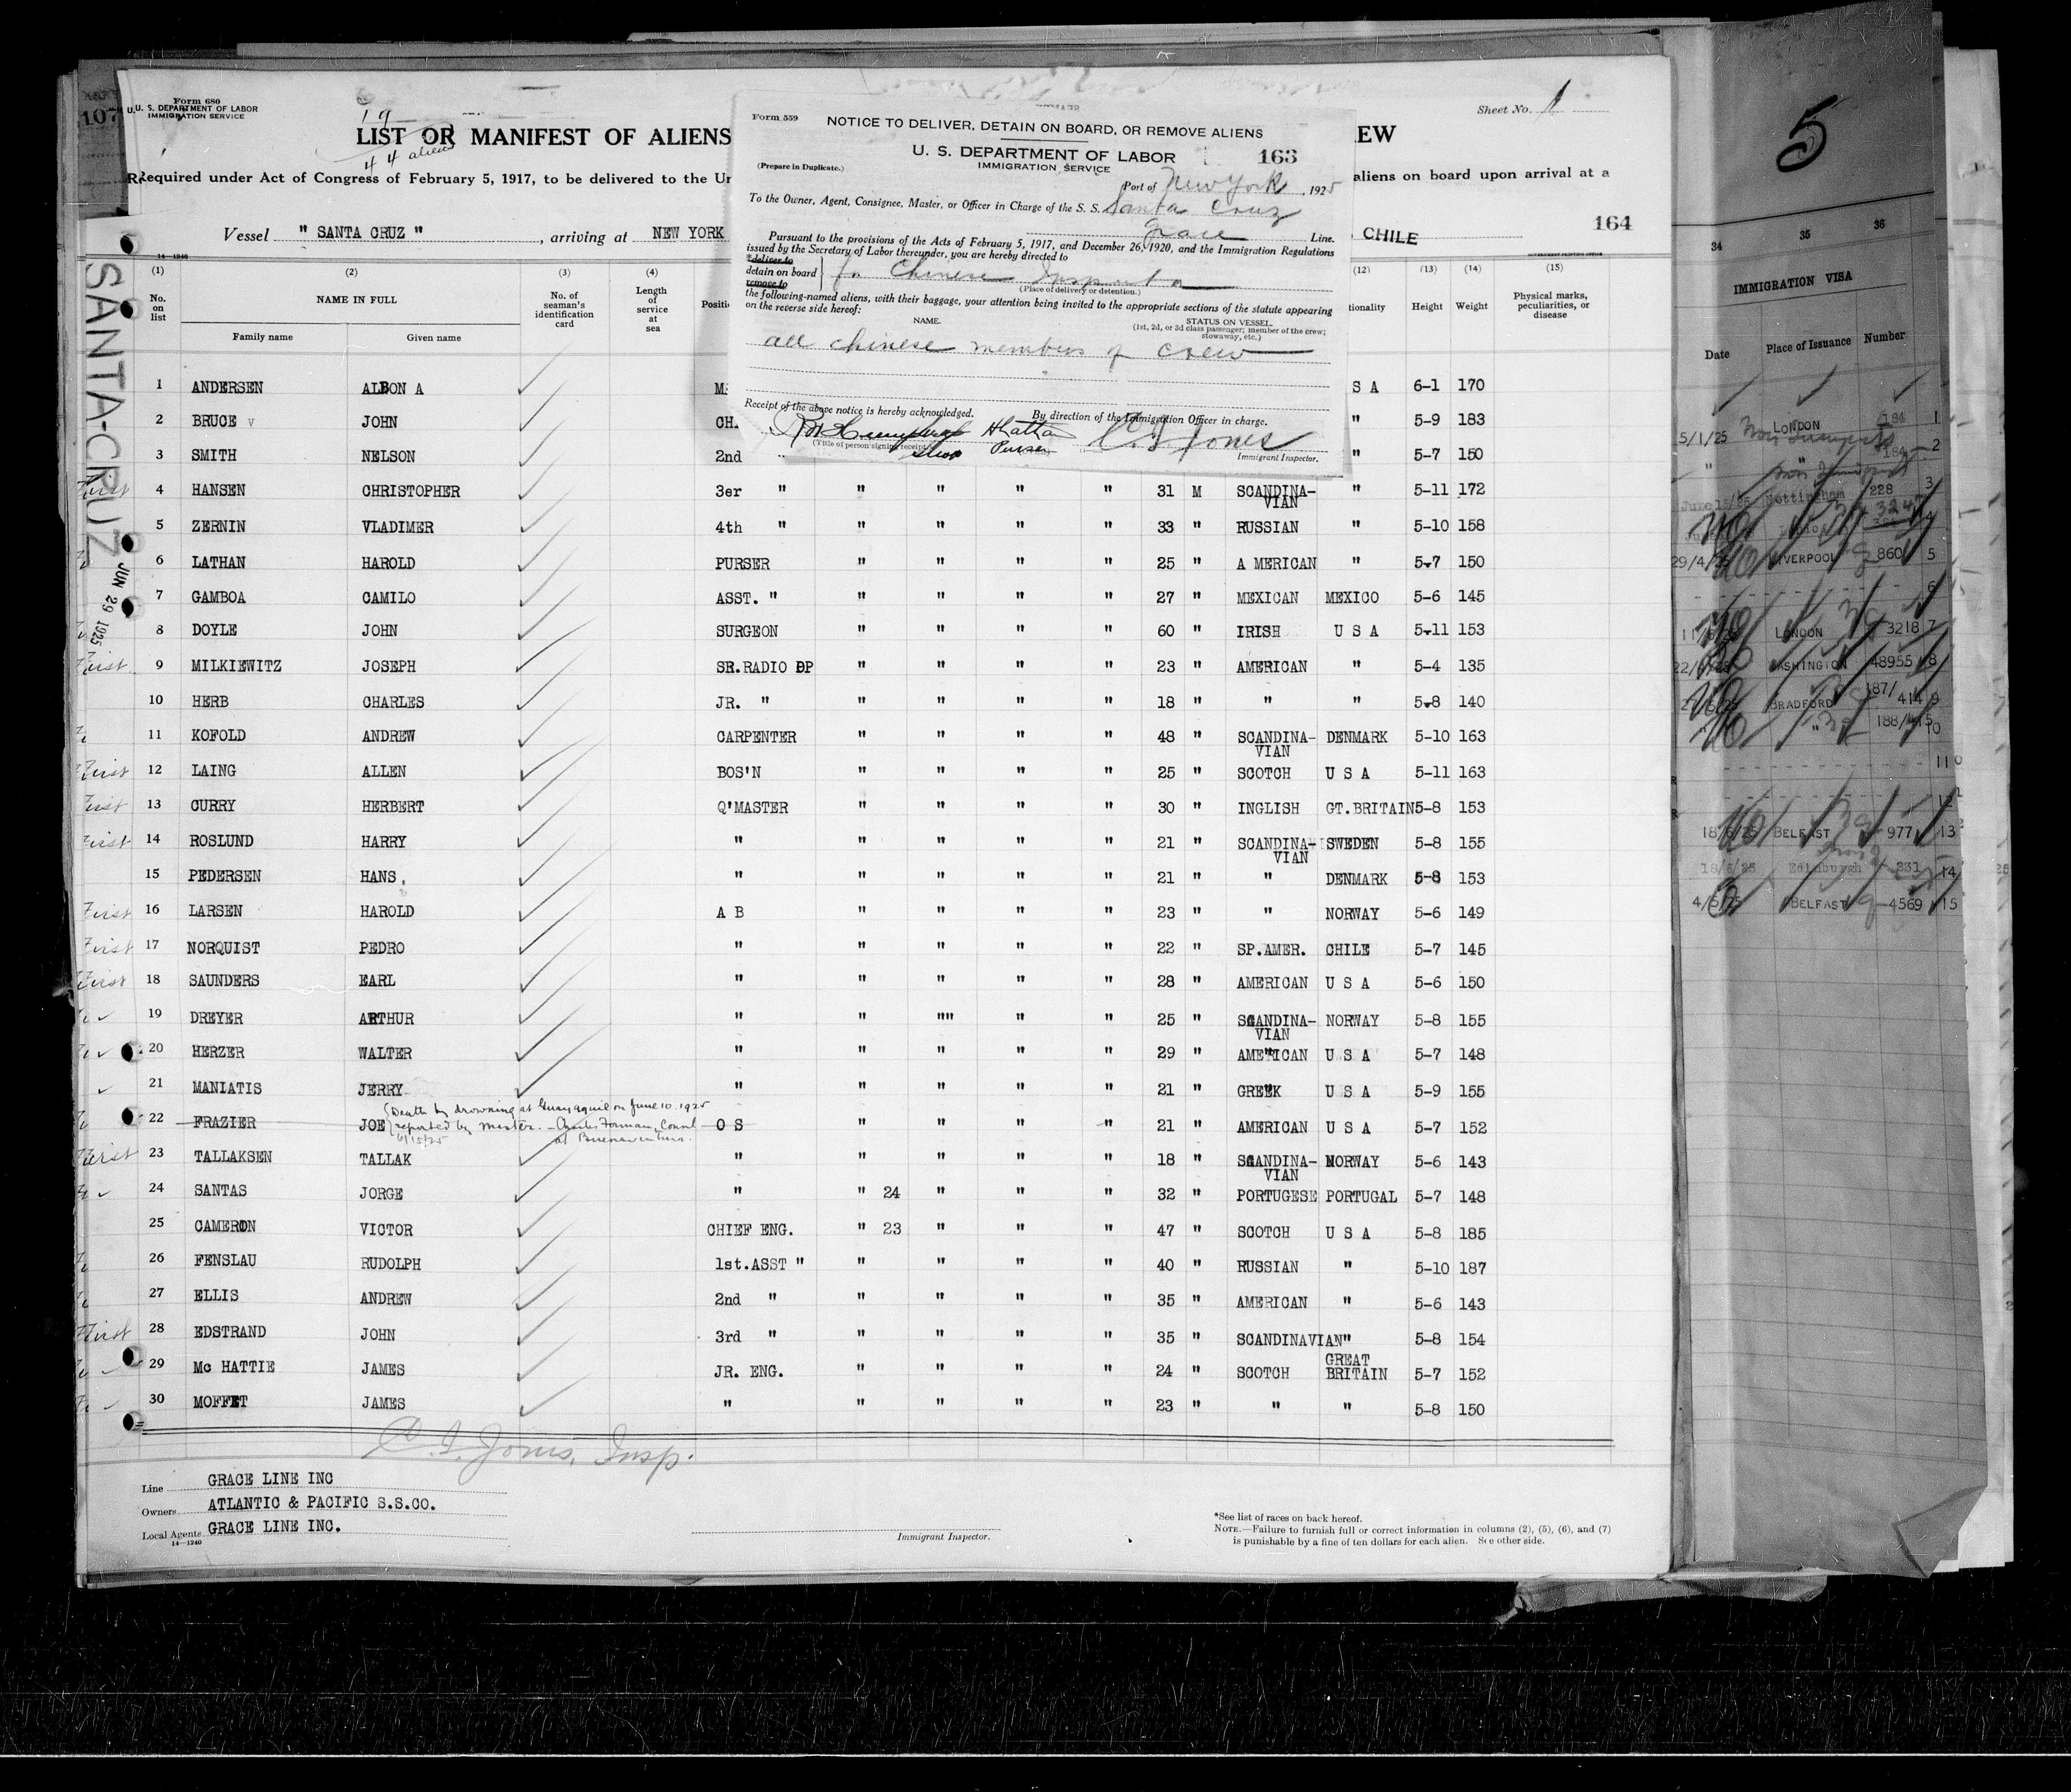 Form 680
U. S. DEPARTMENT OF LABOR
IMMIGRATION SERVICE
107
19
44 aliens
Sheet No. 1
LIST OR MANIFEST OF ALIENS
EW
Required under Act of Congress of February 5, 1917, to be delivered to the Un
aliens on board upon arrival at a
Vessel " SANTA CRUZ " , arriving at NEW YORK
, CHILE
164
Form 559
NOTICE TO DELIVER, DETAIN ON BOARD, OR REMOVE ALIENS
U. S. DEPARTMENT OF LABOR 163
IMMIGRATION SERVICE
(Prepare in Duplicate.)
Port of New York , 1925
To the Owner, Agent, Consignee, Master, or Officer in Charge of the S. S. Santa Cruz
Grace Line.
Pursuant to the provisions of the Acts of February 5, 1917, and December 26, 1920, and the Immigration Regulations
issued by the Secretary of Labor thereunder, you are hereby directed to
*deliver to
detain on board for Chinese Inspection
remove to
(Place of delivery or detention.)
the following-named aliens, with their baggage, your attention being invited to the appropriate sections of the statute appearing
on the reverse side hereof:
NAME. STATUS ON VESSEL.
(1st, 2d, or 3d class passenger; member of the crew;
stowaway, etc.)
all chinese members of crew
Receipt of the above notice is hereby acknowledged. By direction of the Immigration Officer in charge.
HLathan
Purser
Jones
(Title of person signing receipt.)
Immigrant Inspector.
SANTA-CRUZ
JUN 29 1925
14—1240
(1) (2) (3) (4) (12) (13) (14) (15)
No. on list
NAME IN FULL
Family name Given name
No. of seaman's identification card
Length of service at sea
Positi
tionality Height Weight
Physical marks, peculiarities, or disease
1 ANDERSEN ALBON A S A 6-1 170
2 BRUCE JOHN CH. " 5-9 183
3 SMITH NELSON 2nd " 5-7 150
First 4 HANSEN CHRISTOPHER 3er " " " " " 31 M SCANDINA-VIAN " 5-11 172
5 ZERNIN VLADIMER 4th " " " " " 33 " RUSSIAN " 5-10 158
6 LATHAN HAROLD PURSER " " " " 25 " A MERICAN " 5-7 150
7 GAMBOA CAMILO ASST. " " " " " 27 " MEXICAN MEXICO 5-6 145
8 DOYLE JOHN SURGEON " " " " 60 " IRISH U S A 5-11 153
First 9 MILKIEWITZ JOSEPH SR.RADIO OP " " " " 23 " AMERICAN " 5-4 135
10 HERB CHARLES JR. " " " " " 18 " " " 5-8 140
11 KOFOLD ANDREW CARPENTER " " " " 48 " SCANDINA-VIAN DENMARK 5-10 163
First 12 LAING ALLEN BOS'N " " " " 25 " SCOTCH U S A 5-11 163
First 13 CURRY HERBERT Q'MASTER " " " " 30 " INGLISH GT.BRITAIN 5-8 153
First 14 ROSLUND HARRY " " " " " 21 " SCANDINA-VIAN SWEDEN 5-8 155
15 PEDERSEN HANS, " " " " " 21 " " DENMARK 5-8 153
First 16 LARSEN HAROLD A B " " " " 23 " " NORWAY 5-6 149
First 17 NORQUIST PEDRO " " " " " 22 " SP.AMER. CHILE 5-7 145
First 18 SAUNDERS EARL " " " " " 28 " AMERICAN U S A 5-6 150
19 DREYER ARTHUR " " "" " " 25 " SCANDINA-VIAN NORWAY 5-8 155
20 HERZER WALTER " " " " " 29 " AMERICAN U S A 5-7 148
21 MANIATIS JERRY " " " " " 21 " GREEK U S A 5-9 155
22 FRAZIER JOE O S " " " " 21 " AMERICAN U S A 5-7 152
Death by drowning at Guayaquil on June 10, 1925
reported by Master. - Charles Forman, Consul
at Buenaventura.
6/15/25
First 23 TALLAKSEN TALLAK " " " " " 18 " SCANDINA-VIAN NORWAY 5-6 143
24 SANTAS JORGE " " 24 " " " 32 " PORTUGESE PORTUGAL 5-7 148
25 CAMERON VICTOR CHIEF ENG. " 23 " " " 47 " SCOTCH U S A 5-8 185
26 FENSLAU RUDOLPH 1st.ASST " " " " " 40 " RUSSIAN " 5-10 187
27 ELLIS ANDREW 2nd " " " " " 35 " AMERICAN " 5-6 143
First 28 EDSTRAND JOHN 3rd " " " " " 35 " SCANDINAVIAN " 5-8 154
29 Mc HATTIE JAMES JR. ENG. " " " " 24 " SCOTCH GREAT BRITAIN 5-7 152
30 MOFFET JAMES " " " " " 23 " " " 5-8 150
Jones, Insp.
Line GRACE LINE INC
Owners ATLANTIC & PACIFIC S.S.CO.
Local Agents GRACE LINE INC.
14—1240
Immigrant Inspector.
*See list of races on back hereof.
NOTE.—Failure to furnish full or correct information in columns (2), (5), (6), and (7)
is punishable by a fine of ten dollars for each alien. See other side.
5
34 35 36
IMMIGRATION VISA
Date Place of Issuance Number
5/1/25 LONDON 184 1
" 184 2
June 15/25 Nottingham 228 3
29/4/25 LIVERPOOL 860 5
6
LONDON 3218 7
WASHINGTON 48955 8
BRADFORD 187/414 9
" 188/415 10
11
12
18/6/25 BELFAST 977 13
16/6/25 Edinburgh 231 14
4/5/25 BELFAST 4569 15